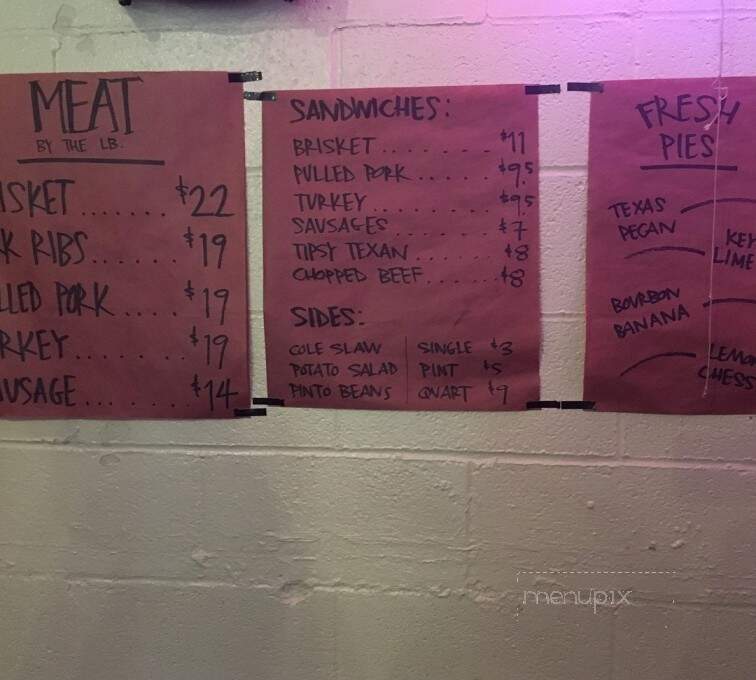 MEAT
BY THE LB.
ISKET ....... $22
K RIBS ...... $19
LLED PORK .... $19
RKEY ....... $19
USAGE ........ $14
SANDWICHES:
BRISKET ....... $11
PULLED PORK ...... $9.5
TURKEY ....... $9.5
SAUSAGES ...... $7
TIPSY TEXAN ..... $8
CHOPPED BEEF ..... $8
SIDES:
COLE SLAW | SINGLE $3
POTATO SALAD | PINT $5
PINTO BEANS | QUART $9
FRESH
PIES
TEXAS
PECAN
KEY
LIME
BOURBON
BANANA
LEMON
CHESS
menupix